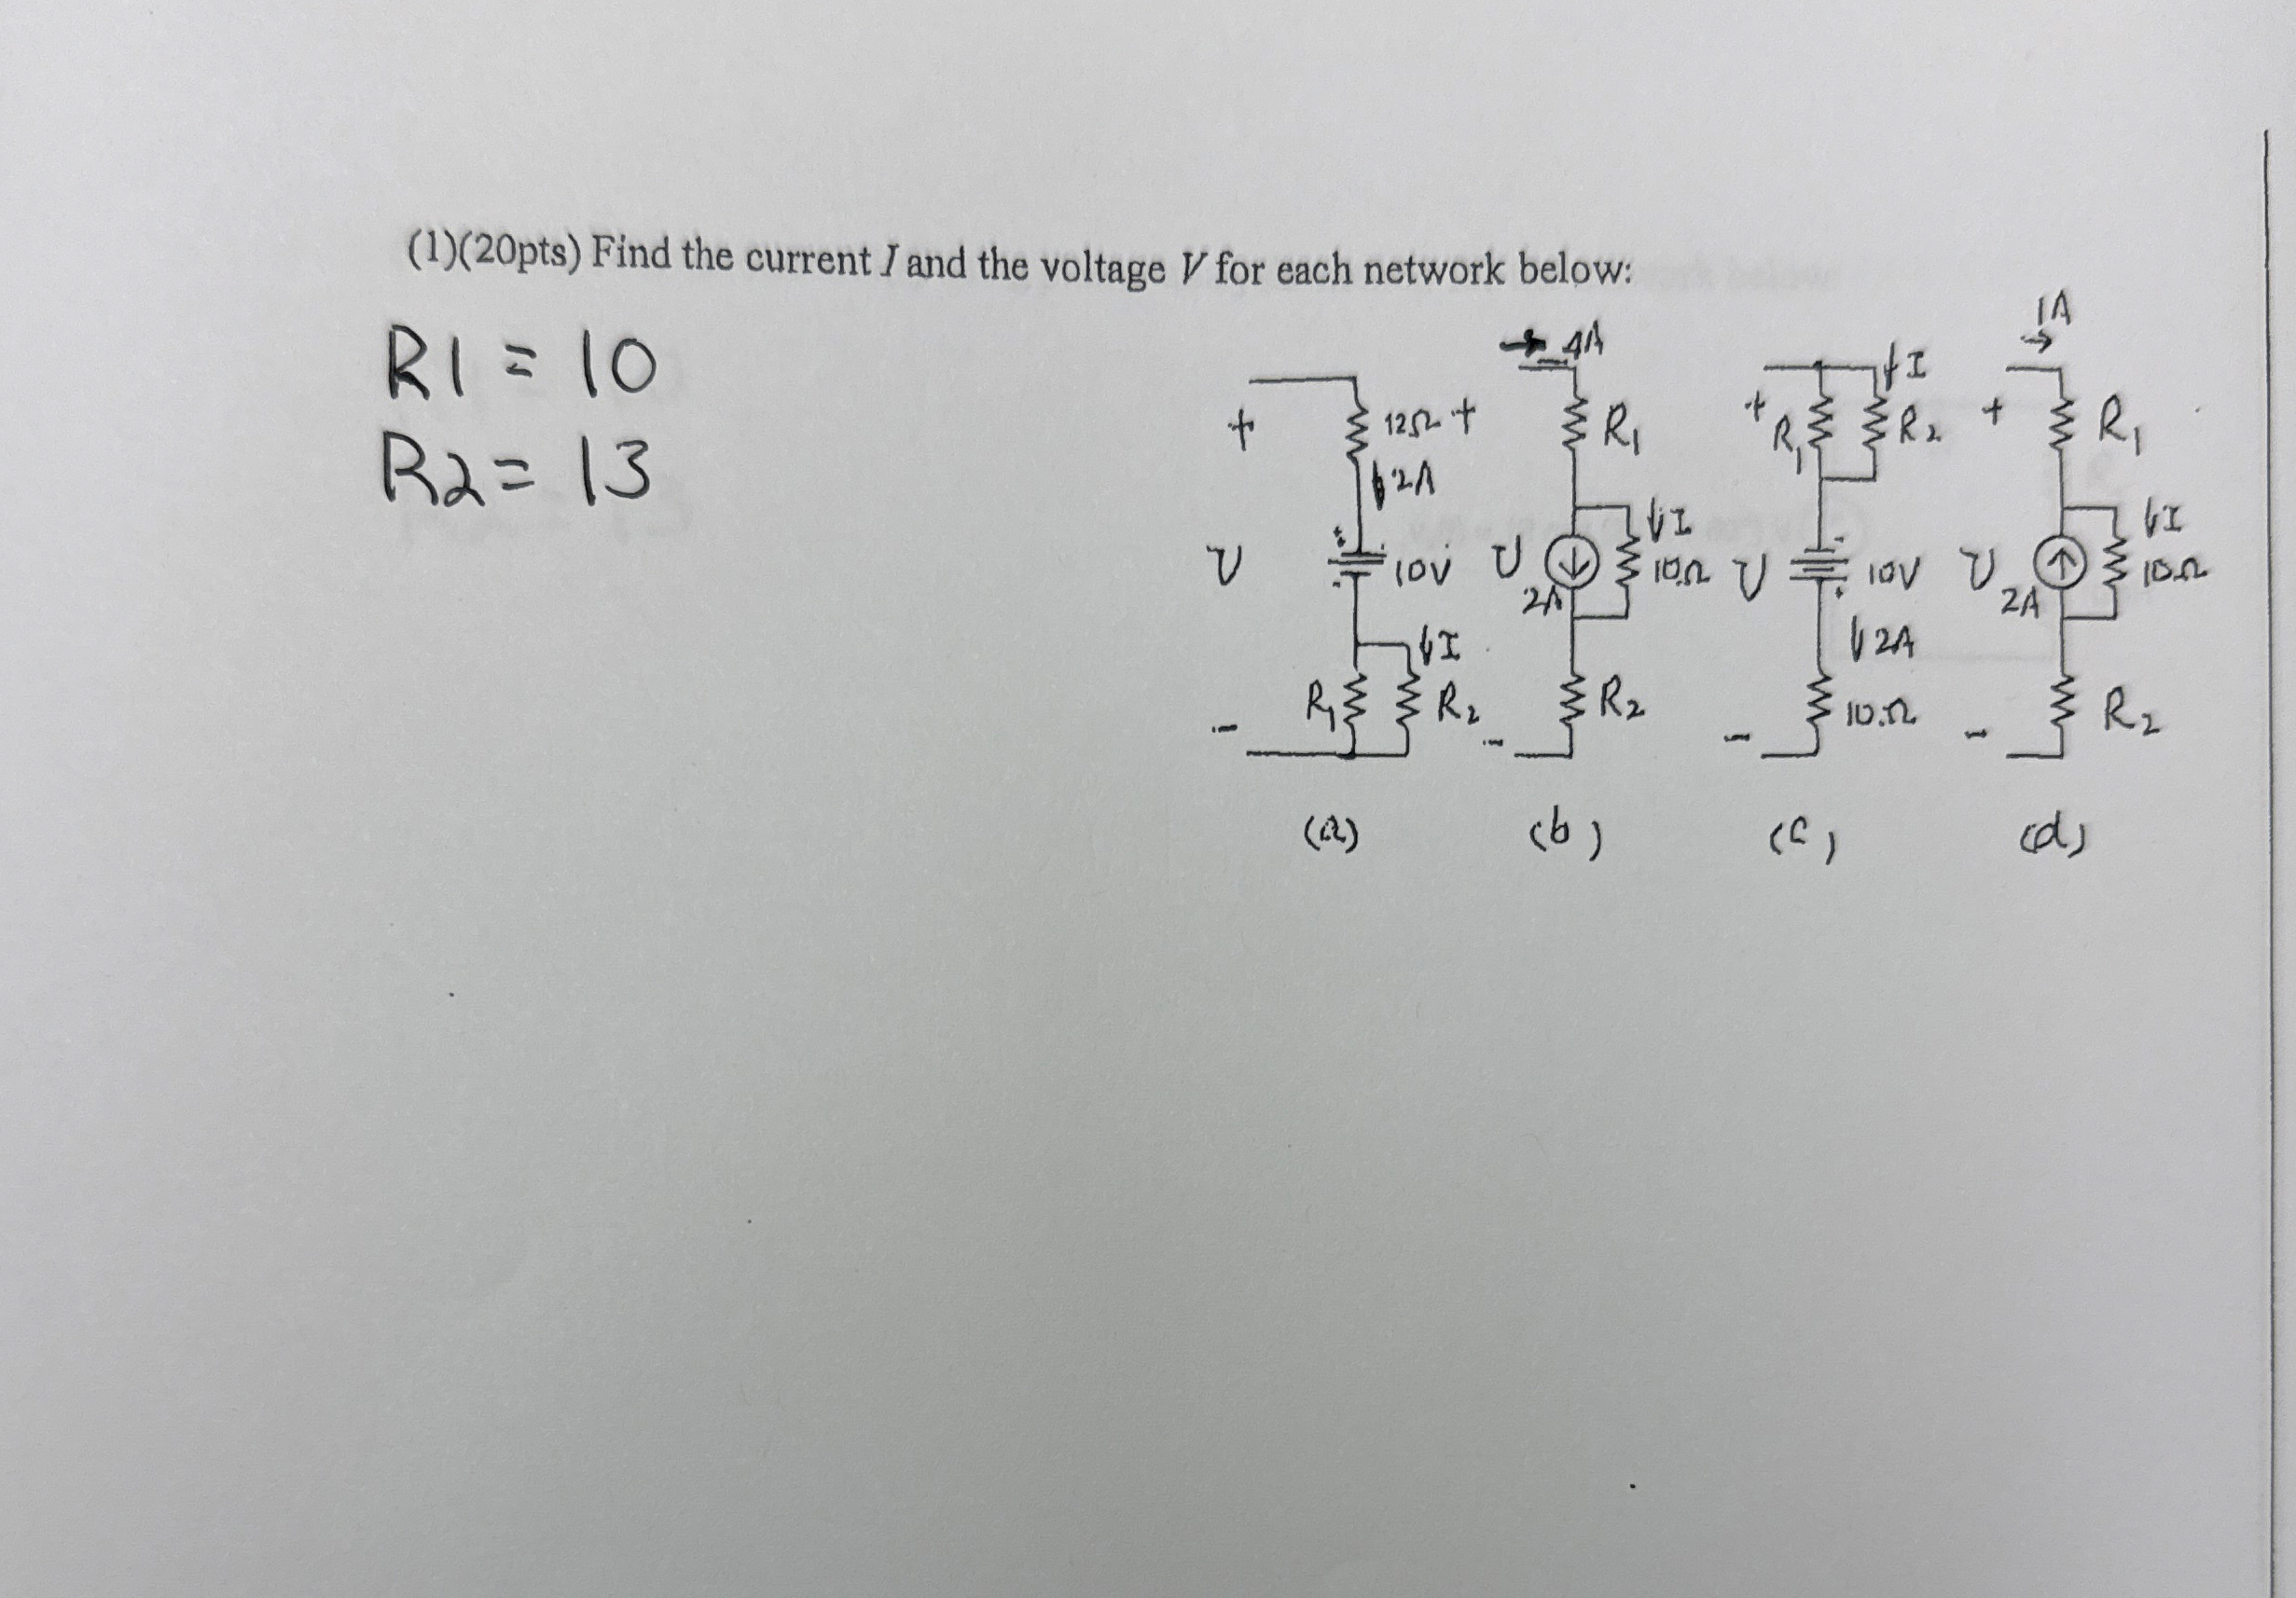 (1)(20pts) Find the current I and the voltage V for each network below:
R1 = 10
R2 = 13
+ 12Ω
↓2A
V
+
-
10V
↓I
R₁ R₂
-
(a)
→ 4A
+ R₁
↓I
V 2A 10Ω
R₂
-
(b)
↓I
+ R₁ R₂
-
V 10V
+
↓2A
10Ω
-
(c)
1A
→
+ R₁
↓I
V 2A 10Ω
R₂
-
(d)